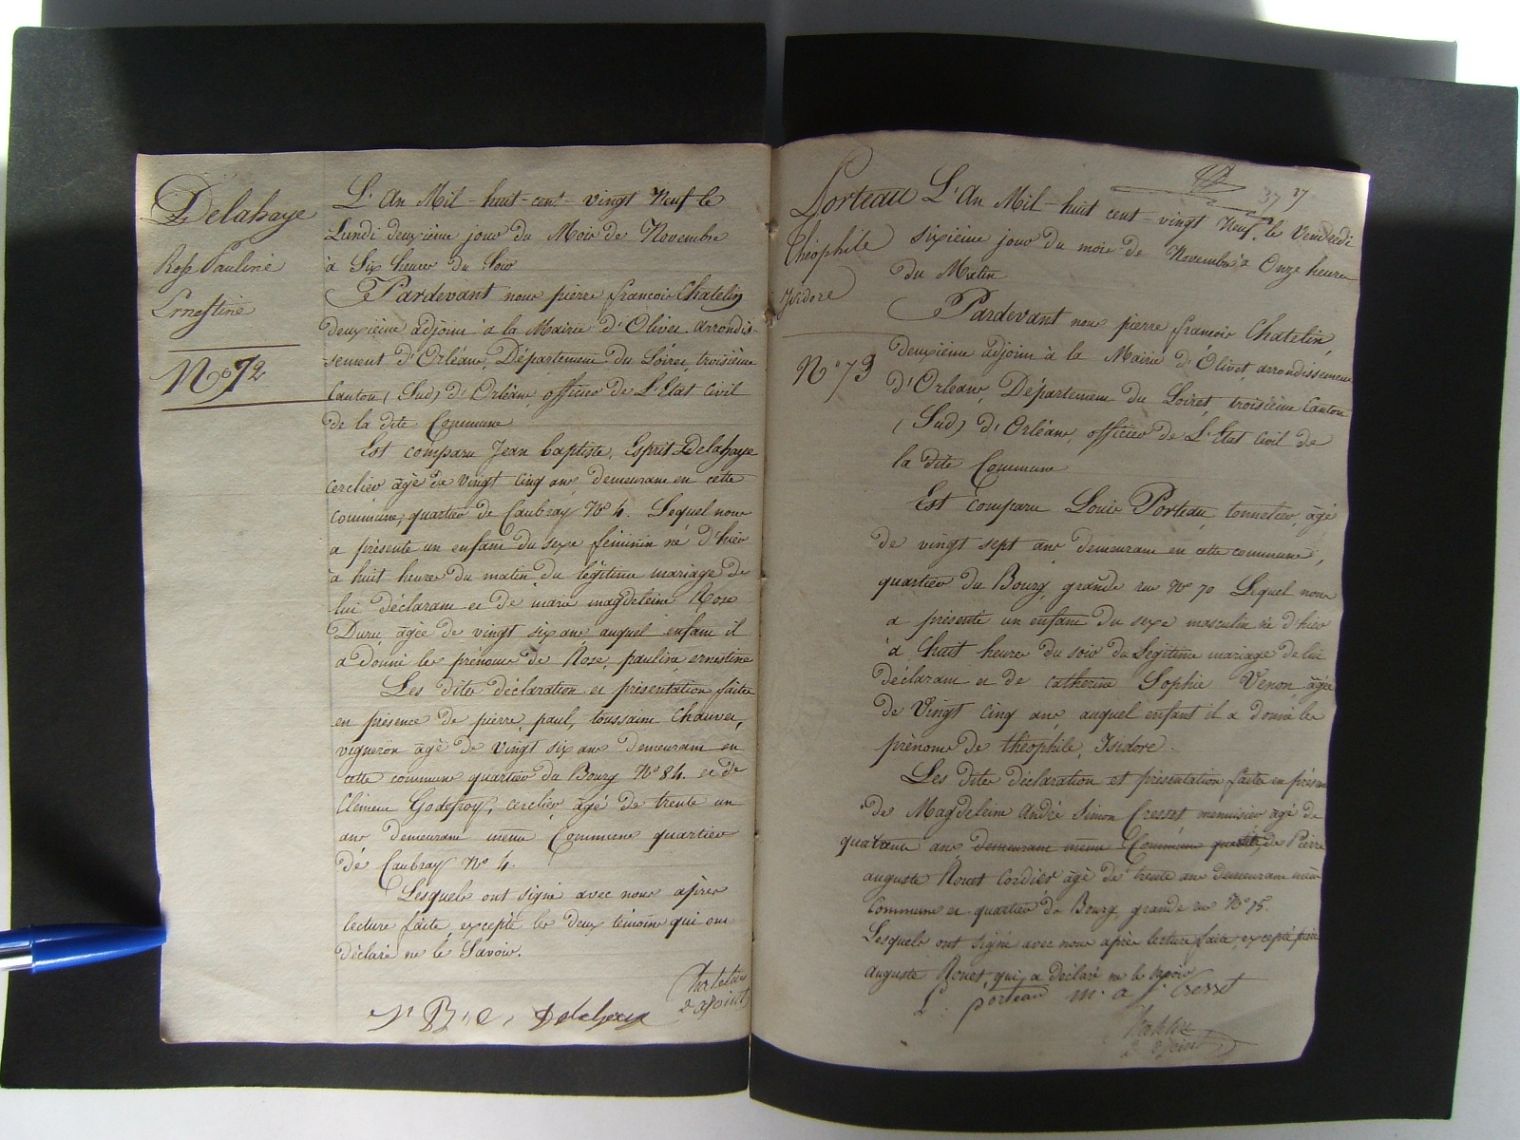 Delahaye
Rose Pauline
Ernestine
N° 72
L'An Mil-huit-cent-vingt Neuf le
Lundi deuxième jour du Mois de Novembre
à Six heures du Soir
Pardevant nous pierre françois Chatelin
deuxième adjoint à la Mairie d'Olivet arrondis-
sement d'Orléans, Département du Loiret, troisième
Canton (Sud) d'Orléans, officier de L'Etat Civil
de la dite Commune
Est comparu Jean baptiste, Esprit Delahaye
cerclier âgé de vingt cinq ans demeurant en cette
commune, quartier de Caubray N° 4. Lequel nous
a présenté un enfant du sexe féminin né d'hier
à huit heures du matin du légitime mariage de
lui déclarant et de marie magdeleine Rose
Duru, âgée de vingt six ans auquel enfant il
a donné les prénoms de Rose, pauline, ernestine
Les dites déclaration et présentation faites
en présence de pierre paul, toussaint Chauvet,
vigneron âgé de vingt six ans demeurant en
cette commune quartier du Bourg N° 84. et de
Clément Godefroy, cerclier, âgé de trente un
ans demeurant même Commune quartier
de Caubray N° 4
Lesquels ont signé avec nous après
lecture faite, excepté les deux témoins qui ont
déclaré ne le Savoir.
Delahaye
adjoint
37
Porteau
théophile
Isidore
N° 73
L'An Mil-huit cent-vingt Neuf, le Vendredi
sixième jour du mois de Novembre à Onze heures
du Matin
Pardevant nous pierre françois Chatelin,
deuxième adjoint à la Mairie d'Olivet, arrondissement
d'Orléans, Département du Loiret, troisième Canton
(Sud) d'Orléans, officier de L'Etat Civil de
la dite Commune
Est Comparu Louis Porteau, tonnelier, âgé
de vingt sept ans demeurant en cette commune,
quartier du Bourg, grande rue N° 70 Lequel nous
a présenté un enfant du sexe masculin né d'hier
à huit heures du soir du Légitime mariage de lui
déclarant et de Catherine Sophie Venon, âgée
de Vingt cinq ans auquel enfant il a donné les
prénoms de théophile, Isidore.
Les dites déclaration et présentation faites en présence
de Magdeleine André Simon Cresset menuisier âgé de
quarante ans demeurant même Commune quartier, de Pierre
auguste Rouet Cordier âgé de trente ans demeurant même
Commune et quartier du Bourg, grande rue N° 15.
Lesquels ont signé avec nous après lecture faite, excepté pierre
auguste Rouet, qui a déclaré ne le savoir
L. porteau m. a s. Cresset
adjoint